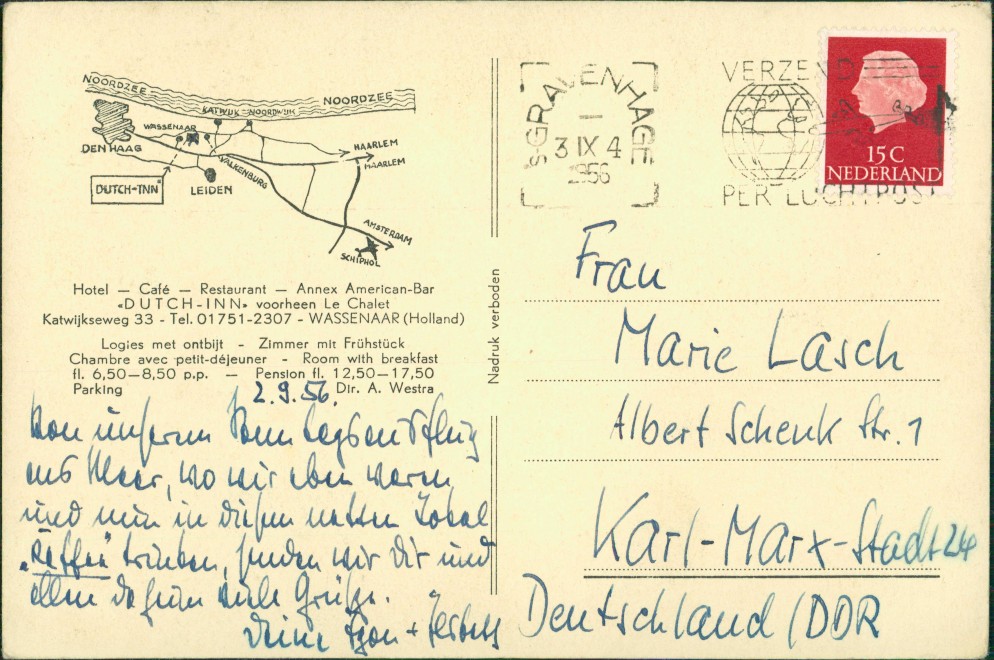 NOORDZEE
NOORDZEE
KATWIJK NOORDWIJK
WASSENAAR
HAARLEM
DEN HAAG
HAARLEM
VALKENBURG
DUTCH-INN
LEIDEN
AMSTERDAM
SCHIPHOL
Hotel — Café — Restaurant — Annex American-Bar
«DUTCH-INN» voorheen Le Chalet
Katwijkseweg 33 - Tel. 01751-2307 - WASSENAAR (Holland)
Logies met ontbijt - Zimmer mit Frühstück
Chambre avec petit-déjeuner - Room with breakfast
fl. 6,50—8,50 p.p. — Pension fl. 12,50—17,50
Parking Dir. A. Westra
2.9.56.
Von unserem Sonntagsausflug
ans Meer, wo wir eben waren
und nun in diesem netten Lokal
"Kaffee" trinken, senden wir Dir und
allen daheim viele Grüße.
Deine Egon +
Nadruk verboden
'sGRAVENHAGE
3 IX 4
1956
VERZEND
PER LUCHTPOST
15C
NEDERLAND
Frau
Marie Lasch
Albert Schenk Str. 1
Karl-Marx-Stadt 24
Deutschland/DDR